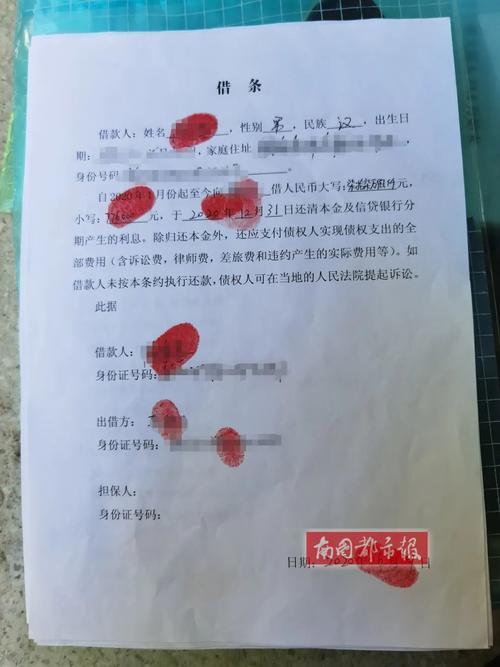 借 条
借款人：姓名，性别男，民族汉，出生日
期：，家庭住址
身份号码。
自2020年1月份起至今向借人民币大写：元，
小写：776000元，于2020年12月31日还清本金及信贷银行分
期产生的利息。除归还本金外，还应支付债权人实现债权支出的全
部费用（含诉讼费，律师费，差旅费和违约产生的实际费用等）。如
借款人未按本条约执行还款，债权人可在当地的人民法院提起诉讼。
此据
借款人：
身份证号码：
出借方：
身份证号码：
担保人：
身份证号码：
南国都市报
日期：2020年日